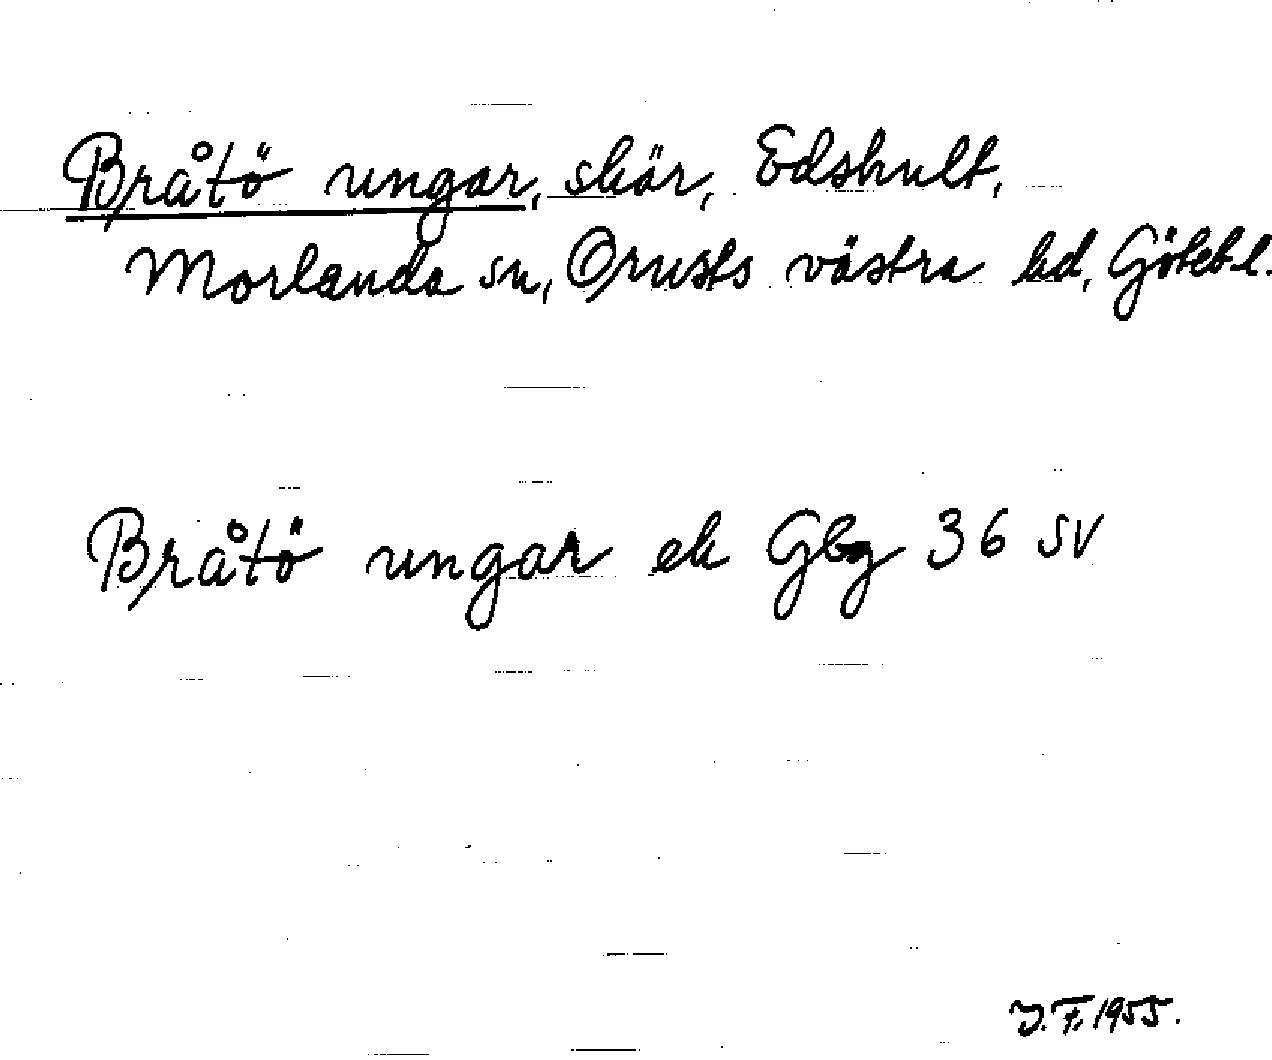 Bråtö ungar, skär, Edshult,
Morlanda sn, Orusts västra hd, Götebl.
Bråtö ungar ek Gbg 36 SV
J. F. 1955.